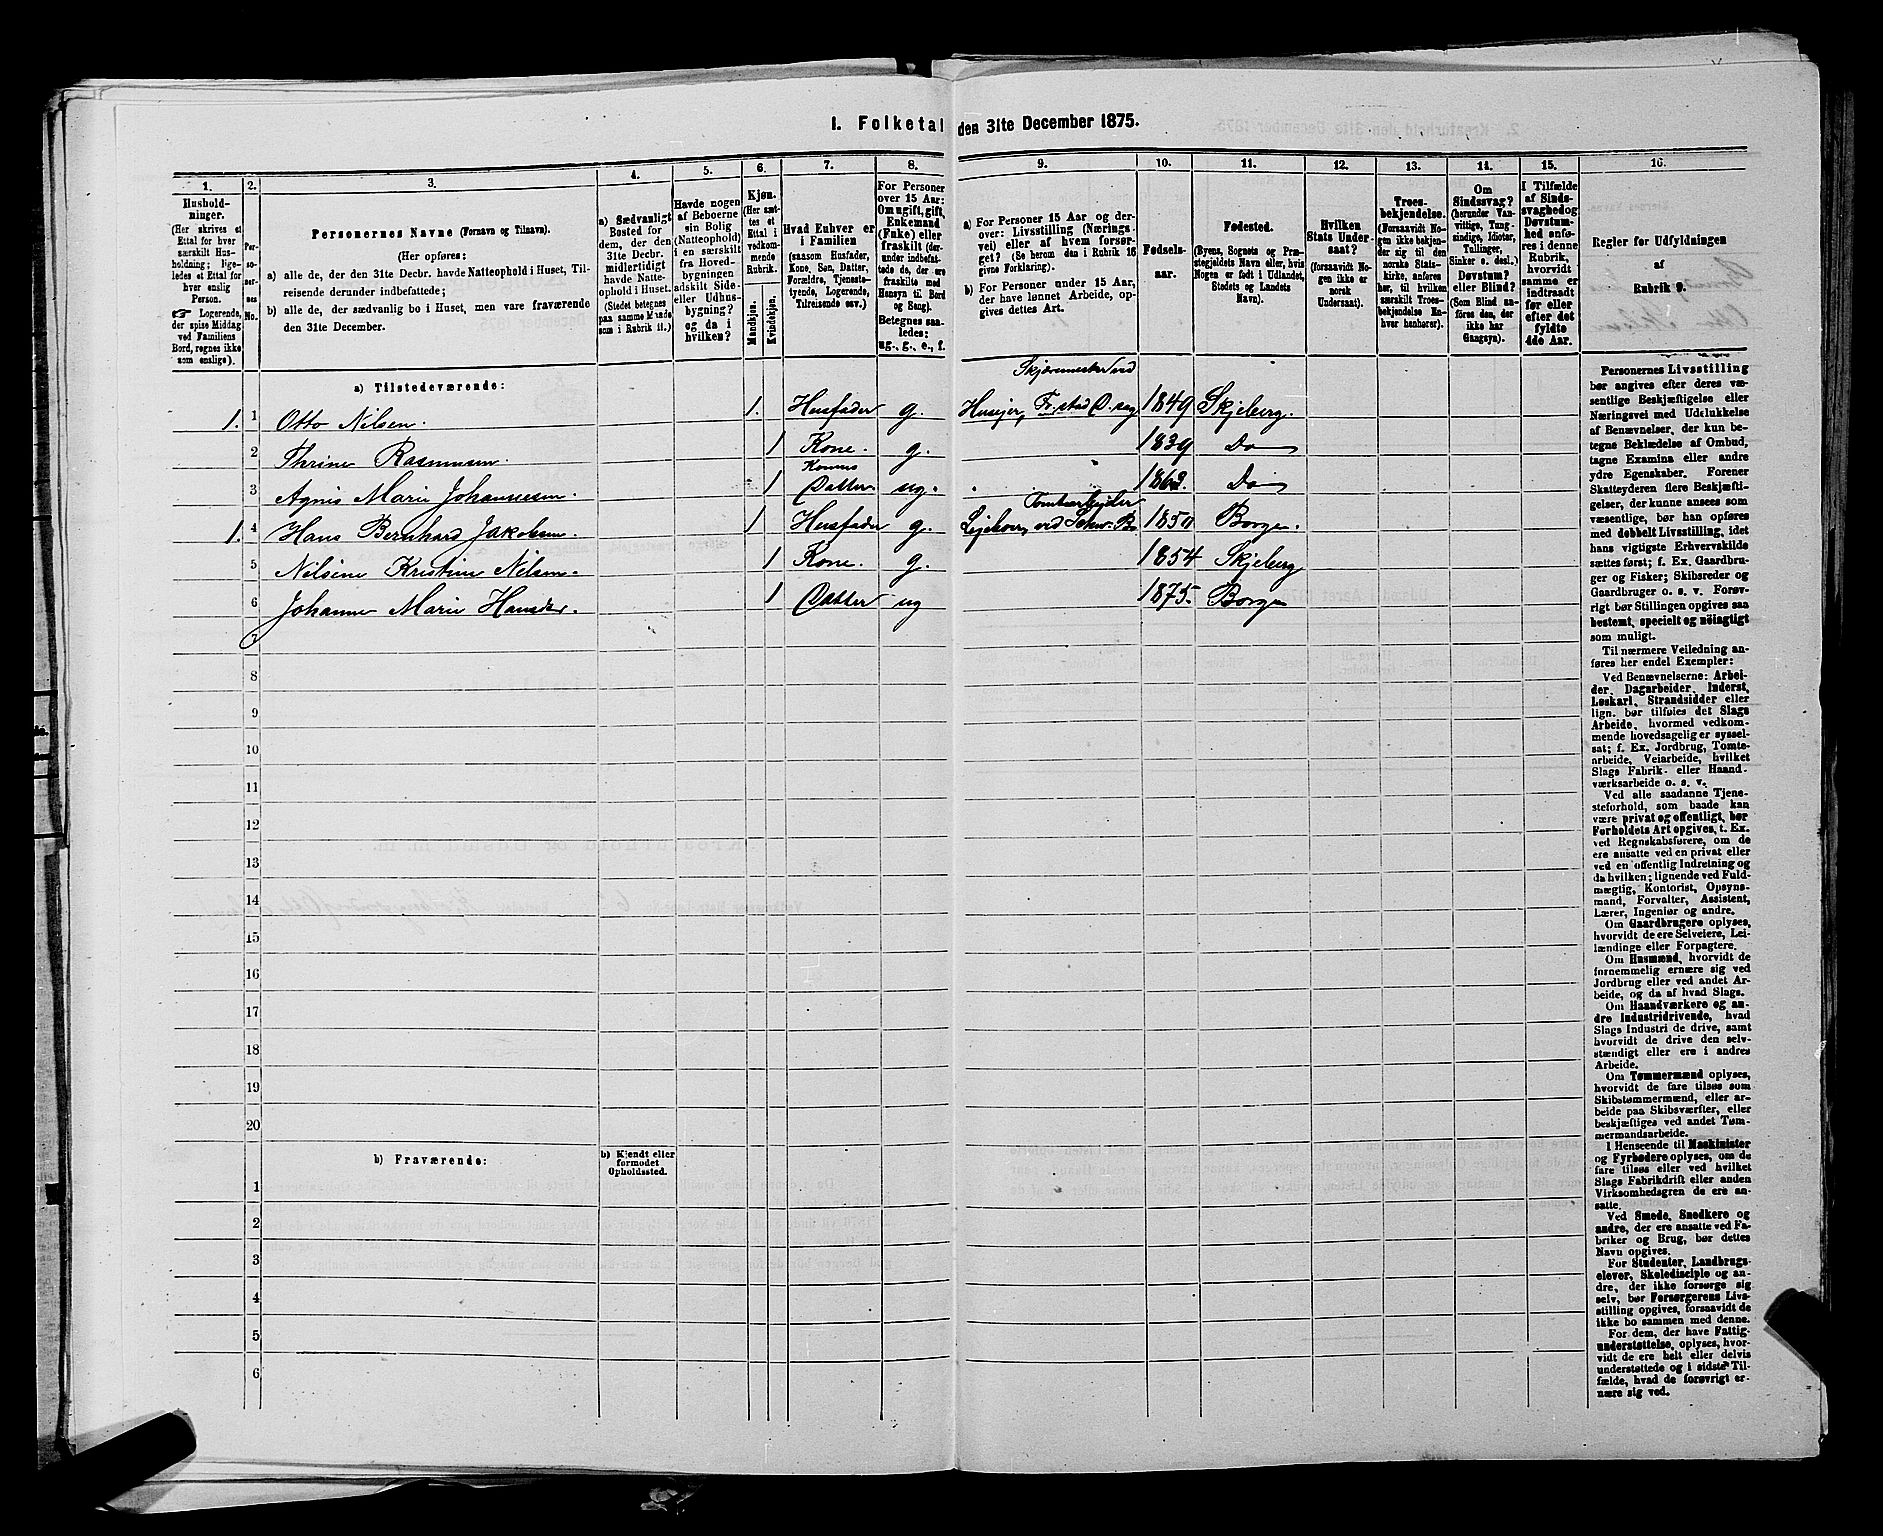 1. Folketal den 31te December 1875.
1.
2.
3.
4.
5.
6.
7.
8.
9.
10.
11.
12.
13.
14.
15.
16.
Hushold-
ninger.
(Her skrives et
Ettal for hver
særskilt Hus-
holdning; lige-
ledes et Ettal for
hver enslig
Person.
☞ Logerende,
der spise Middag
ved Familiens
Bord, regnes ikke
som enslige).
Per-
so-
ner-
nes
No.
Personernes Navne (Fornavn og Tilnavn).
(Her opføres:
a) alle de, der den 31te Decbr. havde Natteophold i Huset, Til-
reisende derunder indbefattede;
b) alle de, der sædvanlig bo i Huset, men vare fraværende
den 31te December.
a) Sædvanligt
Bosted for
dem, der den
31te Decbr.
midlertidigt
havde Natte-
ophold i Huset.
(Stedet betegnes
paa samme Maade
som i Rubrik 11.)
Havde nogen
af Beboerne
sin Bolig
(Natteophold)
i en særskilt
fra Hoved-
bygningen
adskilt Side-
eller Udhus-
bygning?
og da i
hvilken?
Kjøn.
(Her sæt-
tes et
Ettal i
vedkom-
mende
Rubrik.
Mandkjøn.
Kvindekjøn.
Hvad Enhver er
i Familien
(saasom Husfader,
Kone, Søn, Datter,
Forældre, Tjeneste-
tyende, Logerende,
Tilreisende osv.)
For Personer
over 15 Aar:
Om ugift, gift,
Enkemand
(Enke) eller
fraskilt (der-
under indbefat-
tede de, der ere
fraskilte med
Hensyn til Bord
og Seng).
Betegnes saa-
ledes:
ug., g., e., f.
a) For Personer 15 Aar og der-
over: Livsstilling (Nærings-
vei) eller af hvem forsør-
get? (Se herom den i Rubrik 16
givne Forklaring).
b) For Personer under 15 Aar,
der have lønnet Arbeide, op-
gives dettes Art.
Fødsels-
aar.
Fødested.
(Byens, Sognets og Præ-
stegjeldets Navn eller, hvis
Nogen er født i Udlandet,
Stedets og Landets
Navn).
Hvilken
Stats Under-
saat?
(forsaavidt No-
gen ikke er
norsk
Undersaat).
Troes-
bekjendelse.
(Forsaavidt No-
gen ikke bekjen-
der sig til den
norske Stats-
kirke, anføres
her, til hvilken
særskilt Troes-
bekjendelse En-
hver henhører).
Om
Sindssvag?
(herunder Van-
vittige, Tung-
sindige, Idioter,
Tullinger,
Sinker o. desl.)
Døvstum?
eller Blind?
(Som Blind an-
føres den, der
ikke har
Gangsyn).
I Tilfælde
af Sinds-
svaghed og
Døvstum-
hed anfø-
res i denne
Rubrik,
hvorvidt
samme er
indtraadt
før eller
efter det
fyldte
4de Aar.
Regler for Udfyldningen
af
Rubrik 9.
a) Tilstedeværende:
Skjæremester ved
1. 1 Otto Nilsen. 1. Husfader g. Husejer, Fr.stad Ø. sag 1849 Skjeberg.
2 Thrine Rasmusen 1 Kone. g. 1839 Do
Konens
3 Agnis Marie Johannesen 1 Datter ug. 1862. Do
Tomtearbejder
1. 4 Hans Bernhard Jakobsen 1 Husfader g. Lejeboer, ved 1850 Borge.
5 Nilsine Kristine Nilsen. 1 Kone. g. 1854 Skjeberg
6 Johanne Marie Hansdr. 1 Datter ug 1875. Borge
7
8
9
10
11
12
13
14
15
16
17
18
19
20
b) Fraværende:
b) Kjendt eller
formodet
Opholdssted.
1
2
3
4
5
6
Personernes Livsstilling
bør angives efter deres væ-
sentlige Beskjæftigelse eller
Næringsvei med Udelukkelse
af Benævnelser, der kun be-
tegne Beklædelse af Ombud,
tagne Examina eller andre
ydre Egenskaber. Forener
Skatteyderen flere Beskjæfti-
gelser, der kunne ansees som
væsentlige, bør han opføres
med dobbelt Livsstilling, idet
hans vigtigste Erhvervskilde
sættes først; f. Ex. Gaardbru-
ger og Fisker; Skibsreder og
Gaardbruger o. s. v. Forøv-
rigt bør Stillingen opgives saa
bestemt, specielt og nøiagtigt
som muligt.
Til nærmere Veiledning an-
føres her endel Exempler:
Ved Benævnelserne: Arbei-
der, Dagarbeider, Inderst,
Løskarl, Strandsidder eller
lign. bør tilføies det Slags
Arbeide, hvormed vedkom-
mende hovedsagelig er syssel-
sat; f. Ex. Jordbrug, Tomte-
arbeide, Veiarbeide, hvilket
Slags Fabrik- eller Haand-
værksarbeide o. s. v.
Ved alle saadanne Tjene-
steforhold, som baade kan
være privat og offentligt, bør
Forholdets Art opgives, t. Ex.
ved Regnskabsførere, om de
ere ansatte ved en privat eller
ved en offentlig Indretning og
da hvilken; lignende ved Fuld-
mægtig, Kontorist, Opsyns-
mand, Forvalter, Assistent,
Lærer, Ingeniør og andre.
Om Gaardbrugere oplyses,
hvorvidt de ere Selveiere, Lei-
lændinge eller Forpagtere.
Om Husmænd, hvorvidt de
fornemmelig ernære sig ved
Jordbrug eller ved andet Ar-
beide, og da af hvad Slags.
Om Haandværkere og an-
dre Industridrivende, hvad
Slags Industri de drive, samt
hvorvidt de drive den selv-
stændigt eller ere i andres
Arbeide.
Om Tømmermænd oplyses,
hvorvidt de fare tilsøs som
Skibstømmermænd, eller ar-
beide paa Skibsværfter, eller
beskjæftiges ved andet Tøm-
mermandsarbeide.
I Henseende til Maskinister
og Fyrbødere oplyses, om de
fare tilsøs eller ved hvilket
Slags Fabrikdrift eller anden
Virksomhedsgren de ere an-
satte.
Ved Smede, Snedkere og
andre, der ere ansatte ved Fa-
briker og Brug, bør dettes
Navn opgives.
For Studenter, Landbrugs-
elever, Skoledisciple og an-
dre, der ikke forsørge sig
selv, bør Forsørgerens Livs-
stilling opgives, forsaavidt de
ikke bo sammen med denne.
For dem, der have Fattig-
understøttelse, oplyses, hvor-
vidt de ere helt eller delvis
understøttede og i sidste Til-
fælde, hvad de forøvrigt er-
nære sig ved.